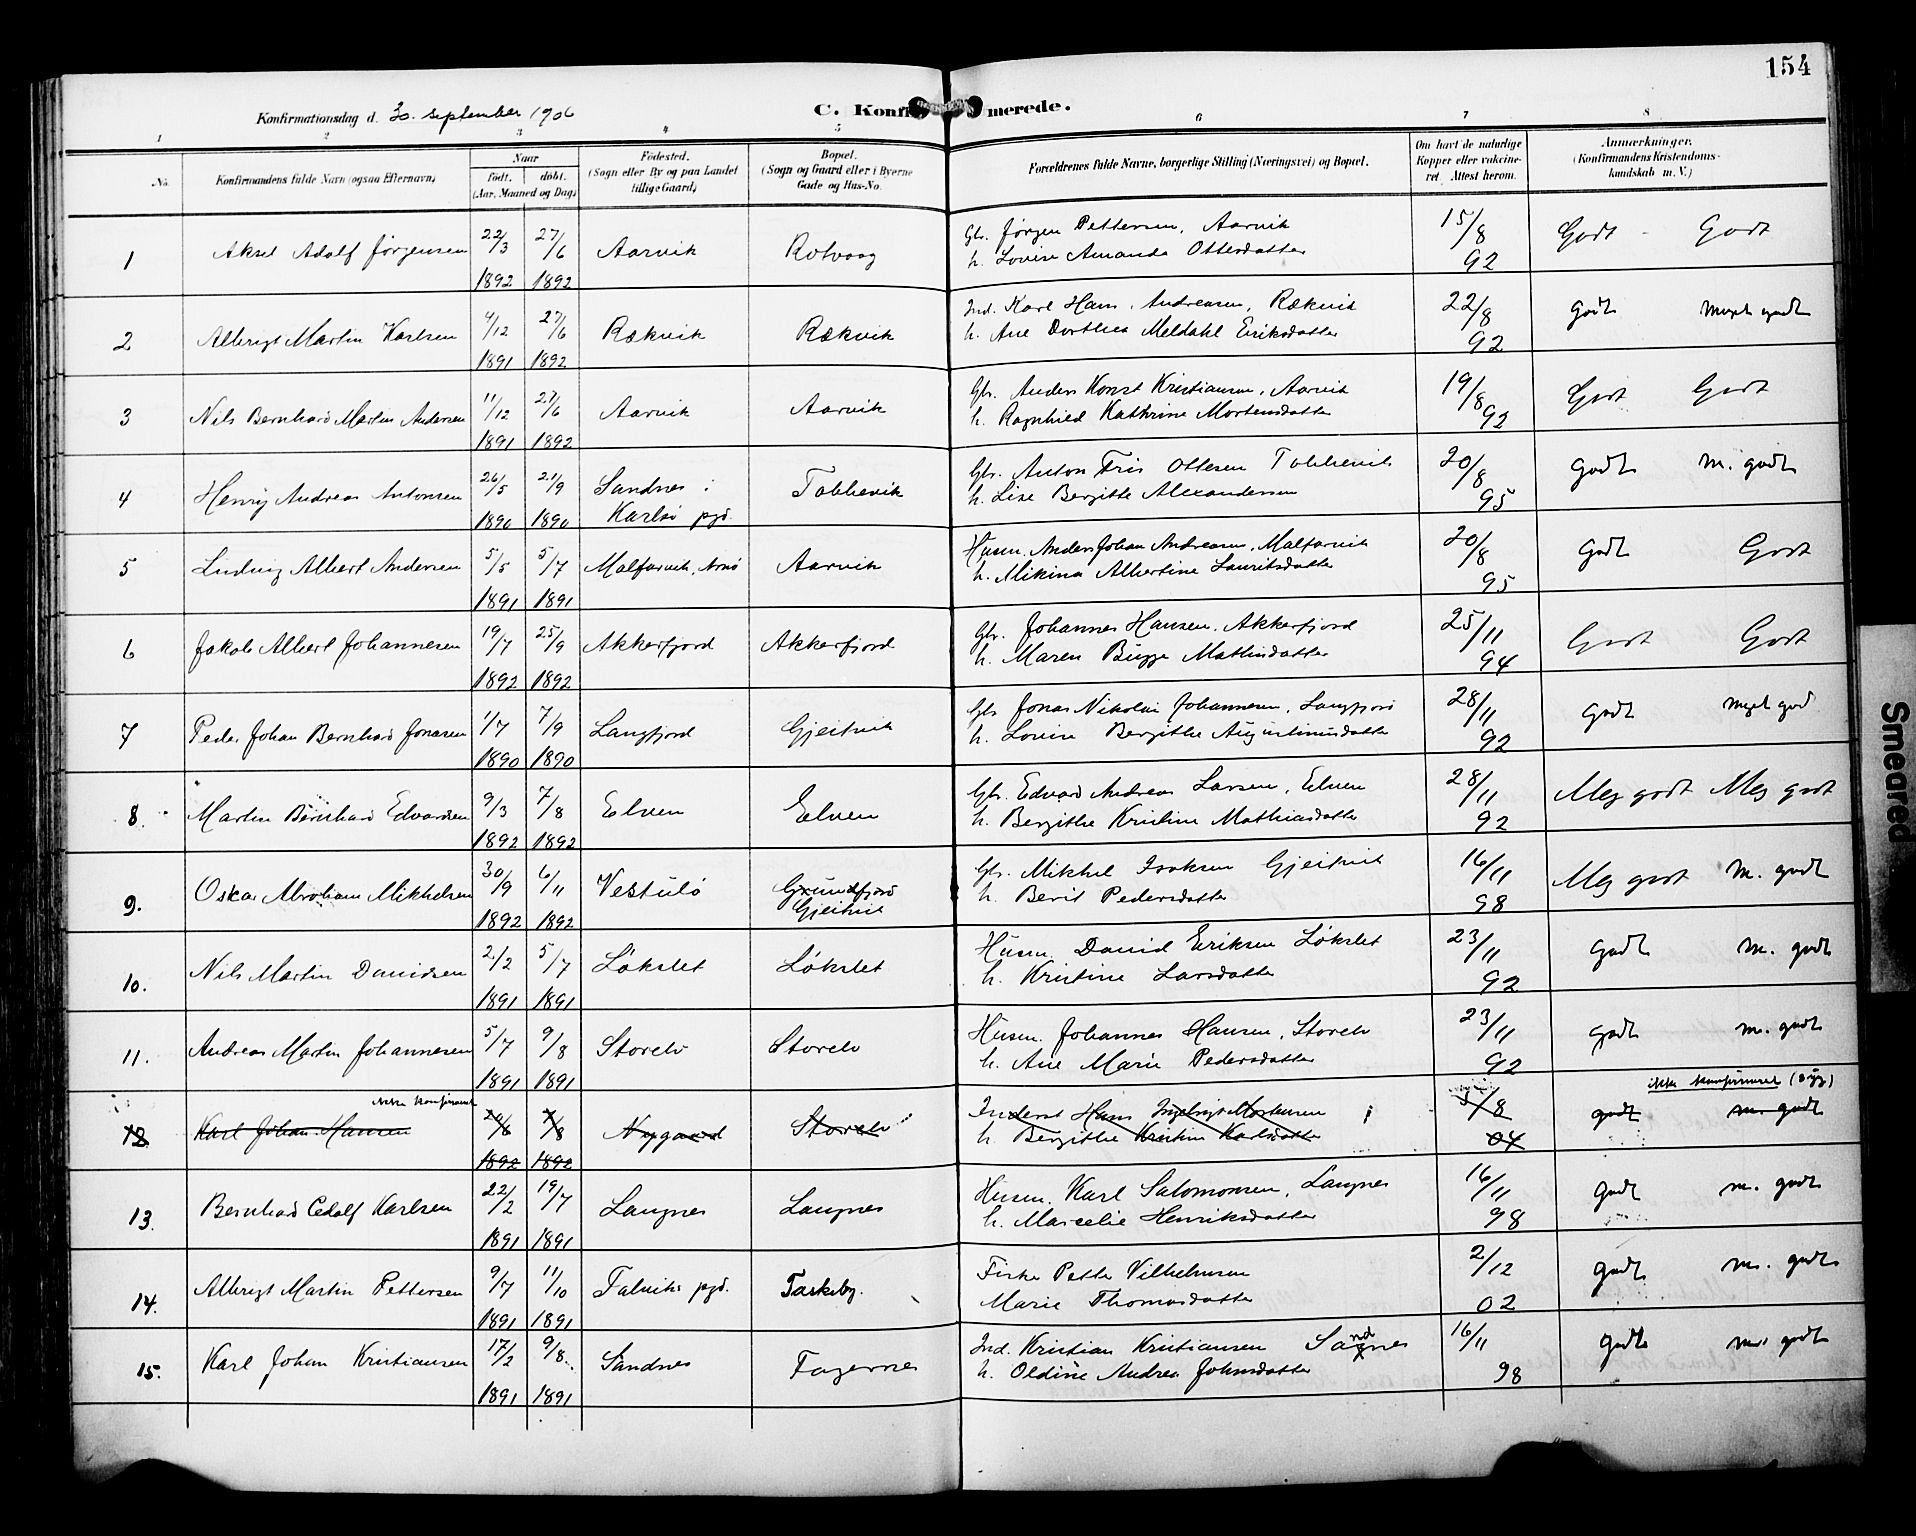 154
Konfirmationsdag d. 30. september 1906
C. Konfi merede.
1 2 3 4 5 6 7 8
No.
Konfirmandens fulde Navn (ogsaa Efternavn)
Naar
født. døbt.
(Aar, Maaned og Dag)
Fødested.
(Sogn eller By og paa Landet
tillige Gaard)
Bopæl.
(Sogn og Gaard eller i Byerne
Gade og Hus-No.
Forældrenes fulde Navne, borgerlige Stilling (Næringsvei) og Bopæl.
Om havt de naturlige
Kopper eller vakcine-
ret. Attest herom.
Anmærkninger.
(Konfirmandens Kristendoms-
kundskab m. V.)
1 Aksel Adolf Jørgensen 22/3 27/6 Aarvik Rotvaag Gbr. Jørgen Pettersen, Aarvik 15/8 Godt Godt
1892 1892 h. Lovise Amanda Ottersdatter 92
2 Albrigt Martin Karlsen 4/12 27/6 Rækvik Rækvik Ind. Karl Hans Andreasen, Rækvik 22/8 godt Meget godt
1891 1892 h. Ane Dorthea Meldahl Eriksdatter 92
3 Nils Bernhard Martin Andersen 11/12 27/6 Aarvik Aarvik Gbr. Anders Konst Kristiansen, Aarvik 19/8 Godt Godt
1891 1892 h. Ragnhild Kathrine Mortensdatter 92
4 Henrij Andreas Antonsen 26/5 21/9 Sandnes i Tobbevik Gbr. Anton Fris Ottesen Tobbevik 20/8 godt m. godt
1890 1890 Karlsø pgd. h. Lise Bergitte Alexandersen 95
5 Ludvig Albert Andersen 5/5 5/7 Malfarvik, Arnø Aarvik Husm. Anders Johan Andreasen, Malfarvik 20/8 godt Godt
1891 1891 h. Mikina Albertine Lauritsdatter 95
6 Jakob Albert Johannesen 19/7 25/9 Akkerfjord Akkerfjord Gbr. Johannes Hansen, Akkerfjord 25/11 Godt Godt
1892 1892 h. Maren Bugge Mathisdatter 94
7 Peder Johan Bernhard Jonasen 1/7 7/9 Langfjord Gjeitvik Gbr Jonas Nikolai Johannesen, Langfjord 28/11 godt meget god
1890 1890 h. Lovise Bergithe Augustinusdatter 92
8. Martin Bernhard Edvardsen 9/3 7/8 Elven Elven Gbr. Edvard Andreas Larsen, Elven 28/11 Meg godt Meg godt
1892 1892 h. Bergithe Kristine Mathiasdatter 92
9. Oskar Abraham Mikkelsen 30/9 6/11 Vestulø Grundfjord Gbr. Mikkel Isaksen Gjeitvik 16/11 Meg godt m. godt
1892 1892 Gjeitvik h. Berit Pedersdatter 98
10. Nils Martin Davidsen 2/2 5/7 Løkslet Løkslet Husm. David Eriksen Løkslet 23/11 godt m. godt
1891 1891 h. Kristine Larsdatter 92
11. Andreas Martin Johannesen 5/7 9/8 Storelv Storelv Husm. Johannes Hansen, Storelv 23/11 godt m. godt
1891 1891 h. Ane Marie Pedersdatter 92
ikke konfirmeret ikke konfirmeret (syg)
12 Karl Johan Hansen 24/6 7/8 Nygaard Storelv Inderst Hans Ingebrigt Mortensen 5/8 godt m. godt
1892 1892 h. Bergithe Kristine Karlsdatter 04
13. Bernhard Edolf Karlsen 22/2 19/7 Langnes Langnes Husm. Karl Salomonsen, Langnes 16/11 godt m. godt
1891 1891 h. Marcelie Henriksdatter 98
14. Albrigt Martin Pettersen 9/7 11/10 Talviks pgd. Taskeby. Fisker Petter Vilhelmsen 2/12 godt m. godt
1891 1891 Marie Thomasdatter 02
15. Karl Johan Kristiansen 17/2 9/8 Sandnes Fagernes Ind. Kristian Kristiansen Sandnes 16/11 godt m. godt
1891 1891 h. Oldine Andrea Johnsdatter 98
Smeared